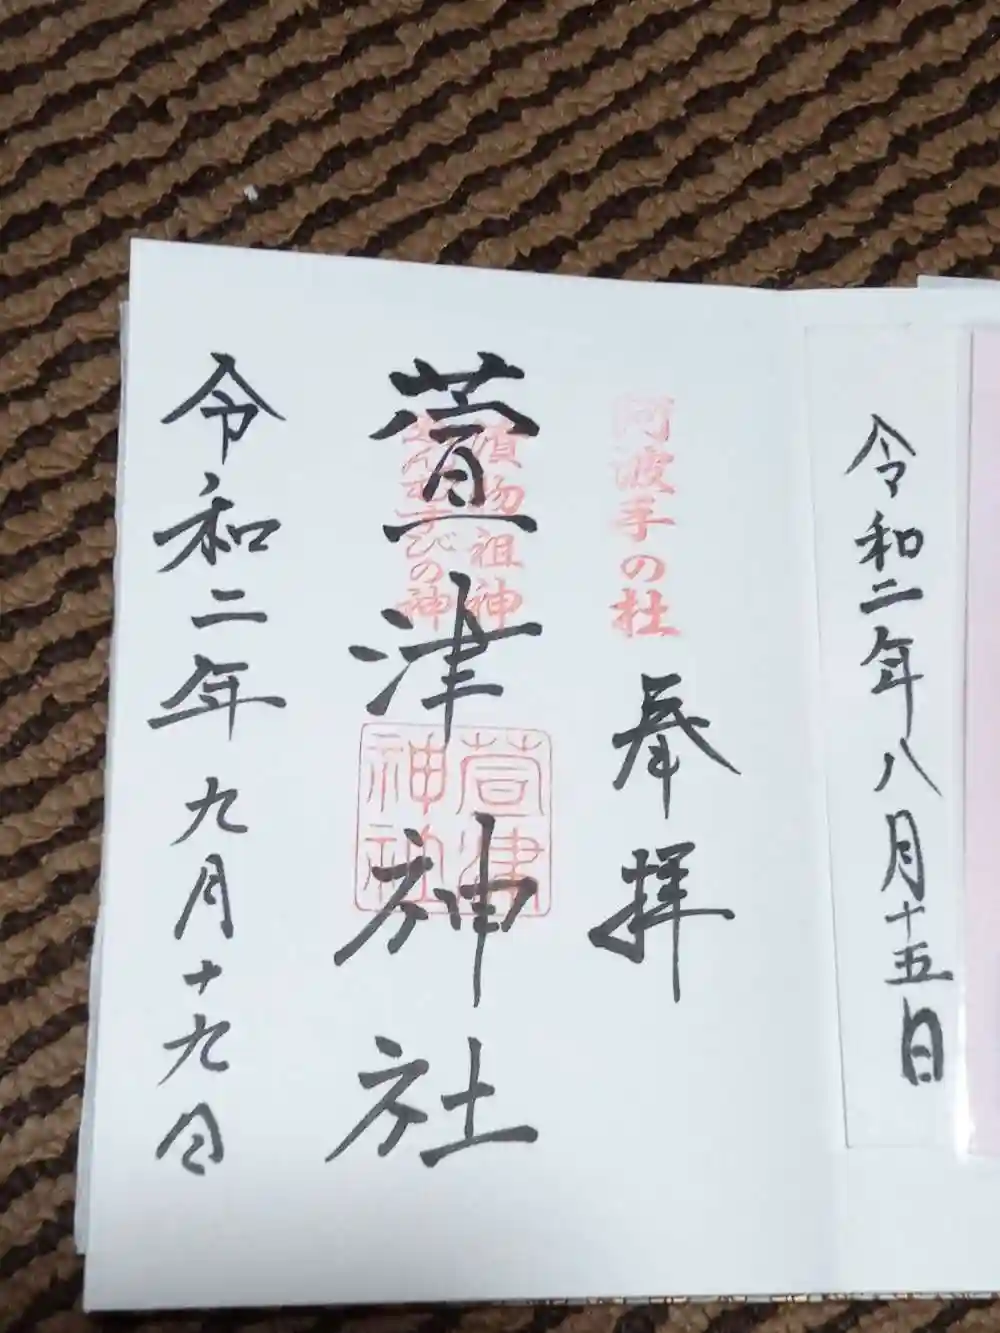 令和二年八月十五日
阿波手の杜
奉拝
漬物祖神
えんむすびの神
萱津神社
萱津神社
令和二年九月十九日